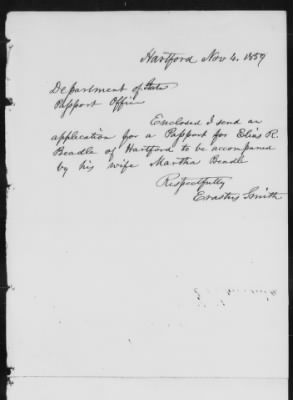 Hartford Nov 4. 1859
Department of State
Passport Office
Enclosed I send an
application for a Passport for Elias R
Beadle of Hartford to be accompanied
by his wife Martha Beadle
Respectfully
Erastus Smith